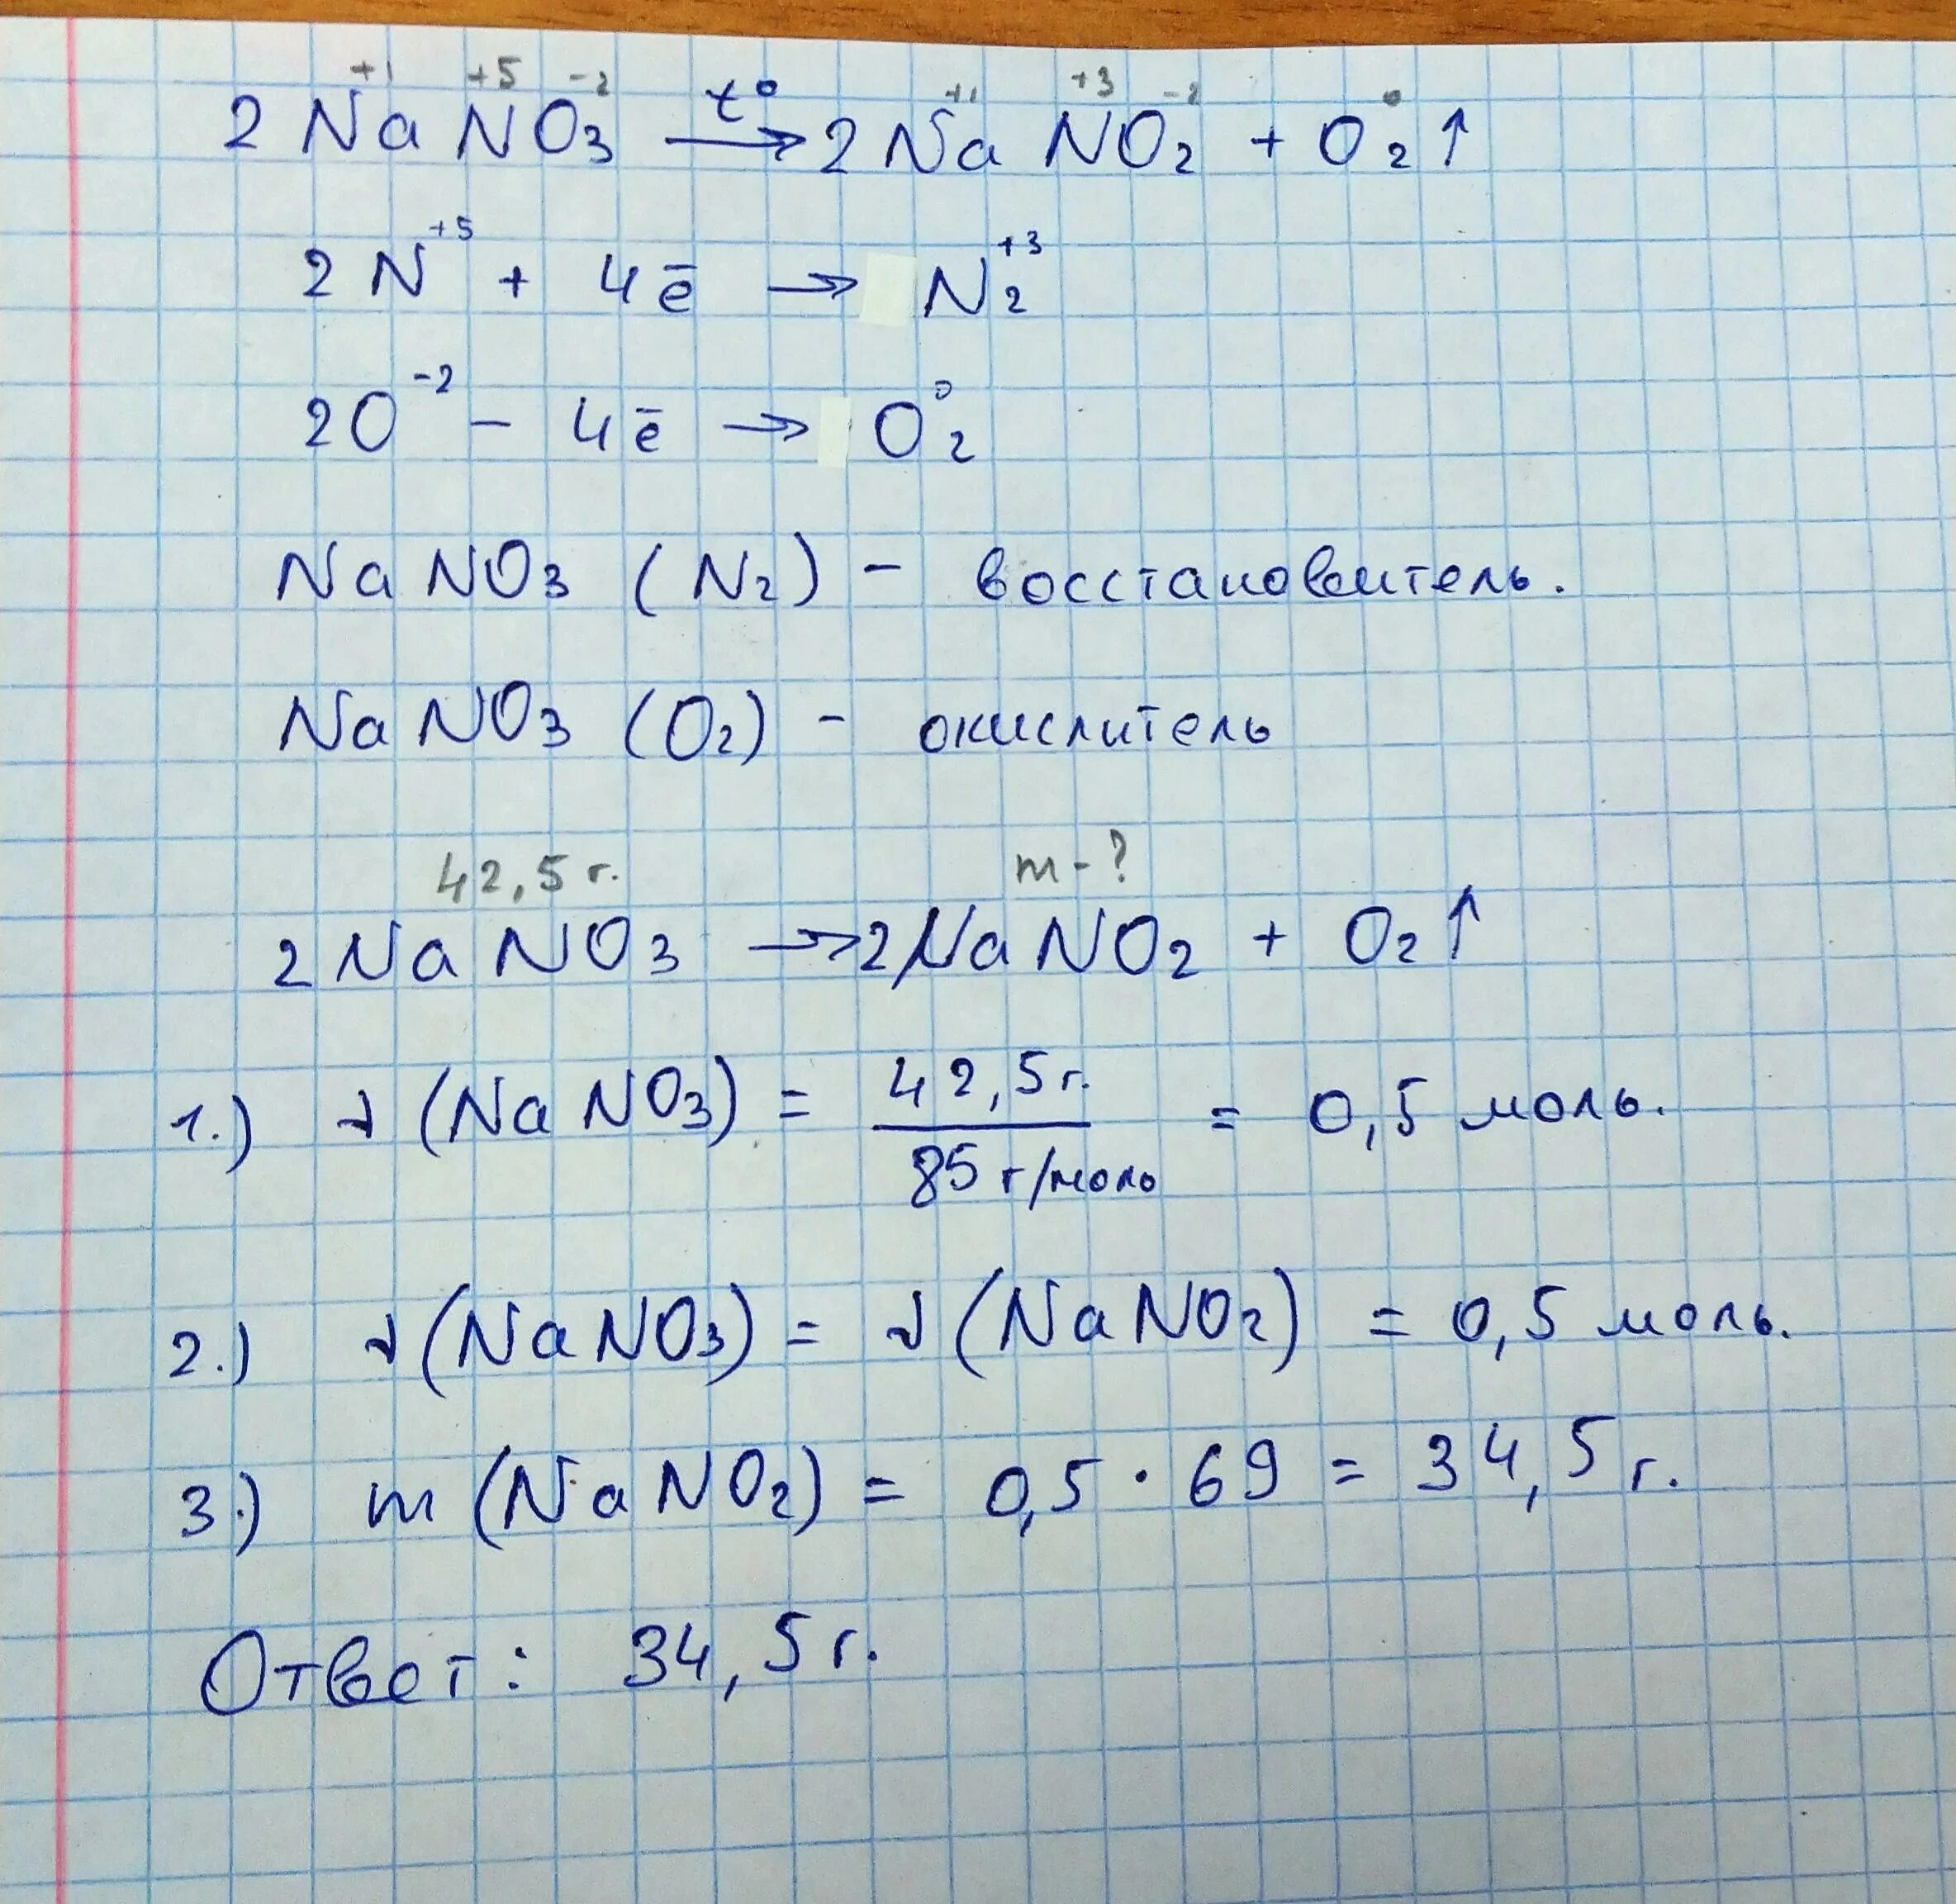 +1 +5 -2 +1 +3 -2 0
2 NaNO₃ t° → 2 NaNO₂ + O₂↑
2 N⁺⁵ + 4ē → N₂⁺³
2O⁻² − 4ē → O₂⁰
NaNO₃ (N₂) - восстановитель.
NaNO₃ (O₂) - окислитель
42,5 г. m-?
2 NaNO₃ → 2NaNO₂ + O₂↑
1.) ν (NaNO₃) = 42,5г. / 85 г/моль = 0,5 моль.
2.) ν (NaNO₃) = ν (NaNO₂) = 0,5 моль.
3.) m (NaNO₂) = 0,5 · 69 = 34,5 г.
Ответ: 34,5 г.